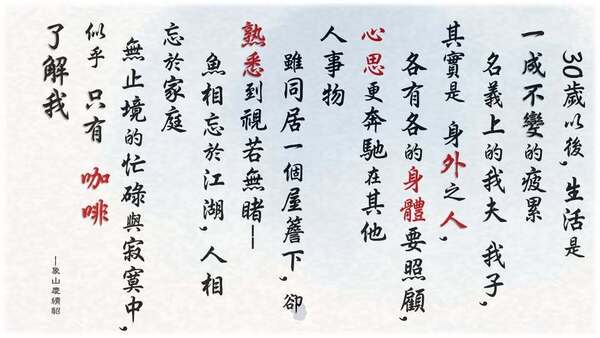 30歲以後，生活是
一成不變的疲累
名義上的我夫 我子，
其實是 身外之人，
各有各的身體要照顧，
心思更奔馳在其他
人事物
雖同居一個屋簷下，卻
熟悉到視若無睹—
魚相忘於江湖，人相
忘於家庭
無止境的忙碌與寂寞中，
似乎 只有 咖啡
了解我
—象山慶續貂